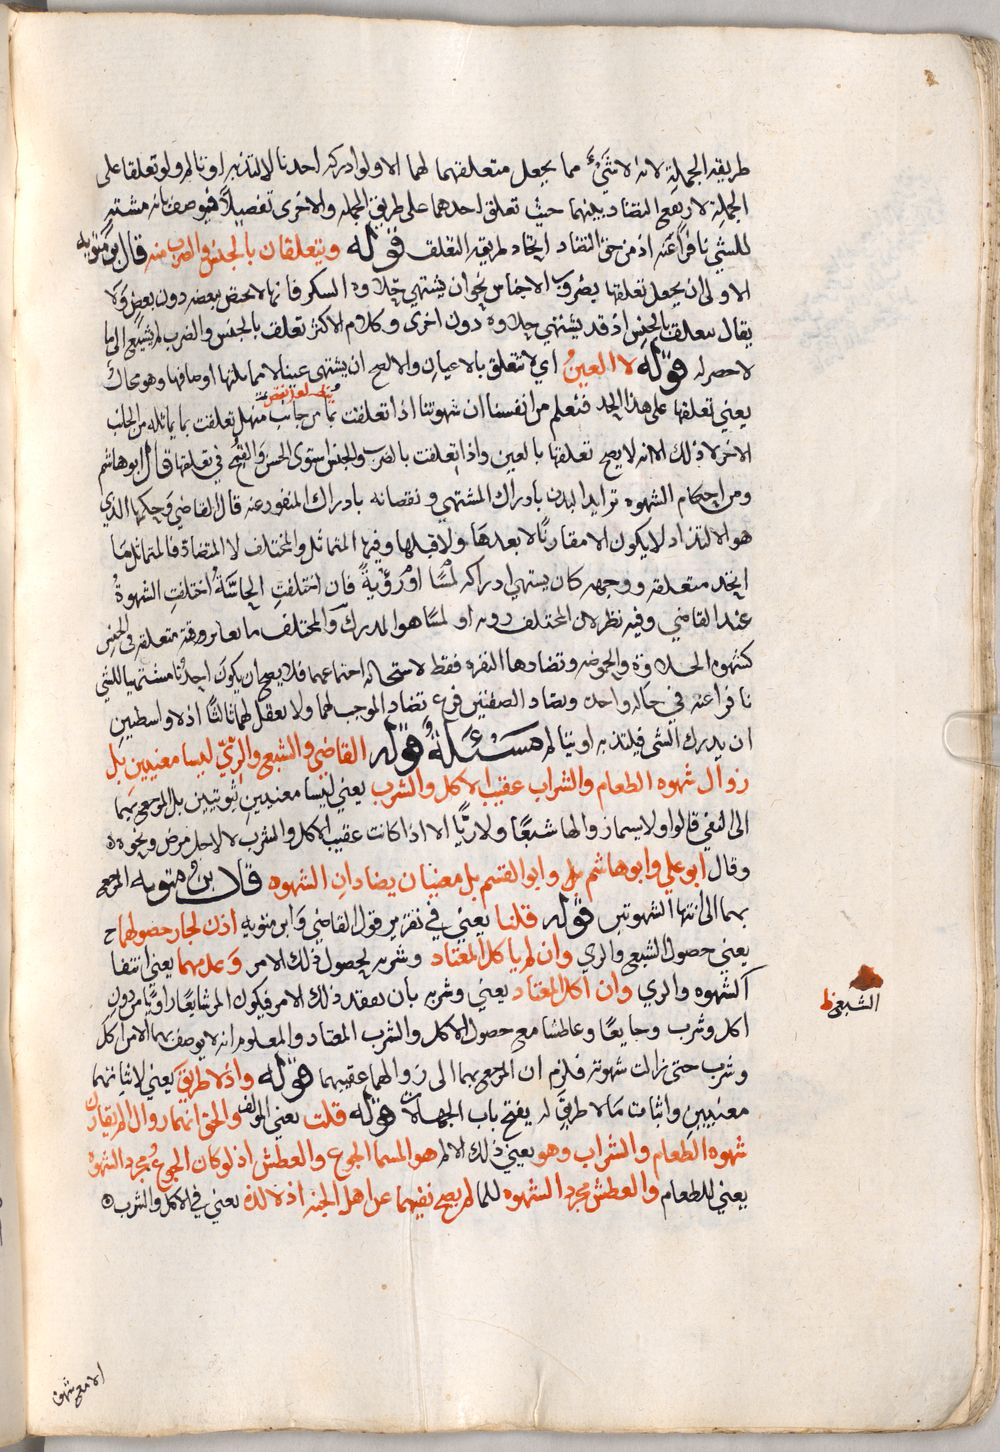 طريقه الجملة لانه لا شيء مما يجعل متعلقهما لهما الا ولو ادركه احدنا لالتذبه او تالم ولو تعلقا على
الجملة لارتفع التضاد بينهما حيث تعلق احدهما على طريق الجمله والاخرى تفصيلاً فيوصف بانه مشتهٍ
للشي نافراً عنه اذ من حق التضاد اتحاد طريقه التعلق قوله ويتعلقان بالجنس والضرب منه قال بن متويه
الاولى ان يجعل تعلقها بضروب الاجناس نحو ان يشتهي حلاوه السكر فانها لا تختص ببعضه دون بعض ولا
يقال يتعلق بالجنس اذ قد يشتهي حلاوة دون اخرى وكلام الاكثر تعلقت بالجنس والضرب لم يشيع الى ما
لا حصر له قوله لا العينُ اي لا تتعلق بالاعيان والا لصح ان يشتهي عينا لا مماثلتها اوصافها وهو محال
يعني تعلقها على هذا الحد فنعلم من انفسنا ان شهوتنا اذا تعلقت بما من جانب منهل تعلقت بما يماثله من الجانب
الاخر لا ذلك الا لانه لا يصح تعلقها بالعين واذا تعلقت بالضرب والجنس استوى الحسن والقبح في تعلقها قال ابو هاشم
ومن احكام الشهوه تزايد البدن بادراك المشتهي ونقصانه بادراك المنفور عنه قال القاضي وحكمها الذي
هو الالتذاذ لا يكون الا مقارنًا لا بعدها ولا قبلها وفيها المتماثل والمختلف لا المتضاد فالمتماثل ما
اتحد متعلقه ووجهه كان يشتهي ادراكه لمسًا او رؤيةً فان اختلفتِ الحاسّةُ اختلفتِ الشهوةُ
عند القاضي وفيه نظر لان المختلف رويه او لمسًا هو المدرك والمختلف ما تغاير وقته متعلقه في الجنس
كشهوه الحلاوة والحموضه وتضادها النفره فقط لاستحاله اجتماعهما فلا يصح ان يكون احدنا مشتهيا للشي
نافرا عنه في حاله واحده وتضاد الصفتين فرع تضاد الموجب لهما ولا يعقل لهما ثالثًا اذ لا واسطه بين
ان يدرك الشي فيلتذ به او يتالم مسئلة قوله القاضي والشبع والرِيّ ليسا معنيين بل
زوال شهوه الطعام والشراب عقيب الاكل والشرب يعني ليسا معنيين ثبوتيين بل المرجع بهما
الى النفي قالوا ولا يسما زوالها شبعًا ولا ريًّا الا اذا كانت عقيب الاكل والشرب لا لاجل مرض ونحوه
وقال ابو علي وابو هاشم بل وابو القسم بل معنيان يضادان الشهوه قال بن متويه المرجع
بهما الى انتها الشهوتين قوله قلنا يعني في تقرير قول القاضي وابن متويه اذن لجاز حصولهما ح
يعني حصول الشبع والري وان لم ياكل المعتاد وشربه لحصول ذلك الامر وعدمهما يعني انتفا
الشهوه والري وان اكل المعتاد يعني وشربه بان يفقد ذلك الامر فيكون المرء شابعًا راويًا من دون
الشبع ظ
اكل وشرب وجايعًا وعاطشا مع حصول الاكل والشرب المعتاد والمعلوم انه لا يوصف بهما الا من اكل
وشرب حتى زالت شهوته فلزم ان المرجع بهما الى زوالهما عقيبهما قوله واذ لا طريق يعني لاثباتهما
معنيين واثبات ما لا طريق له يفتح باب الجهالات قوله قلت يعني المولف والحق انهما زوال الم يقارن
شهوه الطعام والشراب وهو يعني ذلك الالم هو المسما الجوع والعطش اذ لو كان الجوعُ مجرد الشهوه
يعني للطعام والعطش مجرد الشهوه للما لم يصح نفيهما عن اهل الجنه اذ لا لذه يعني في الاكل والشرب
الا مع شهوه